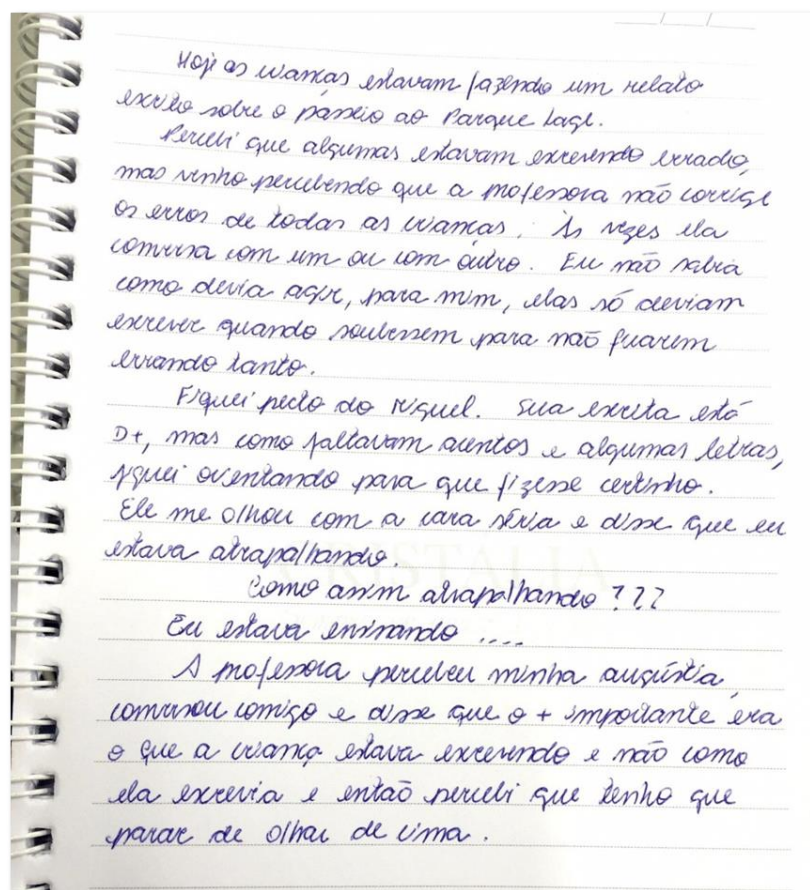 Hoje as crianças estavam fazendo um relato
escrito sobre o passeio ao Parque Lage.
Percebi que algumas estavam escrevendo errado,
mas venho percebendo que a professora não corrige
os erros de todas as crianças. Às vezes ela
conversa com um ou com outro. Eu não sabia
como devia agir, para mim, elas só deviam
escrever quando soubessem para não ficarem
errando tanto.
Fiquei perto do Miguel. Sua escrita está
D+, mas como faltavam acentos e algumas letras,
fiquei orientando para que fizesse certinho.
Ele me olhou com a cara séria e disse que eu
estava atrapalhando.
Como assim atrapalhando ???
Eu estava ensinando ....
A professora percebeu minha angústia,
conversou comigo e disse que o + importante era
o que a criança estava escrevendo e não como
ela escrevia e então percebi que tenho que
parar de olhar de cima.